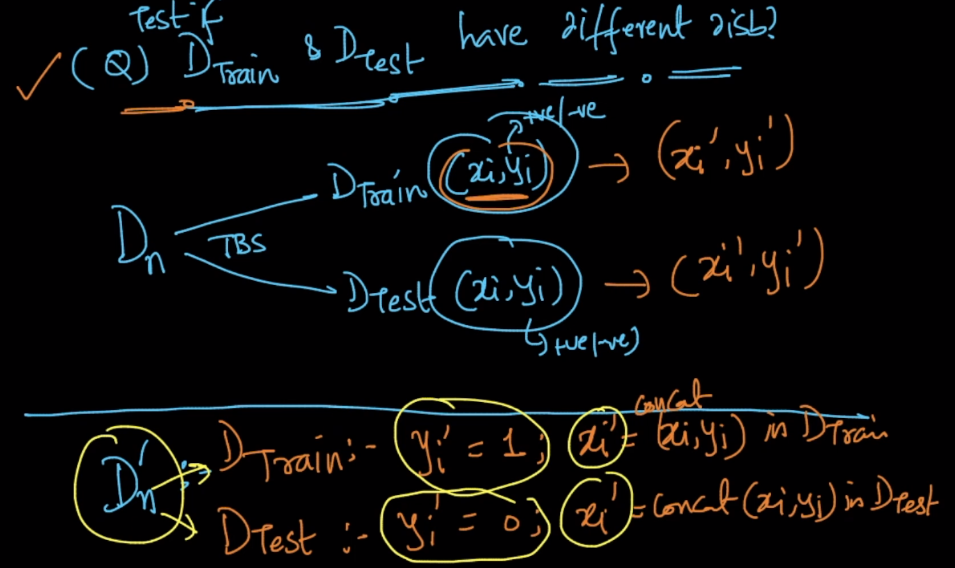 Test if
(Q) DTrain & DTest have different disb?
+ve/-ve
DTrain (xi, yi) → (xi', yi')
Dn
TBS
DTest (xi, yi) → (xi', yi')
+ve(-ve)
concat
DTrain :- yi' = 1; xi' = (xi, yi) in DTrain
Dn' :-
DTest :- yi' = 0; xi' = concat (xi, yi) in DTest